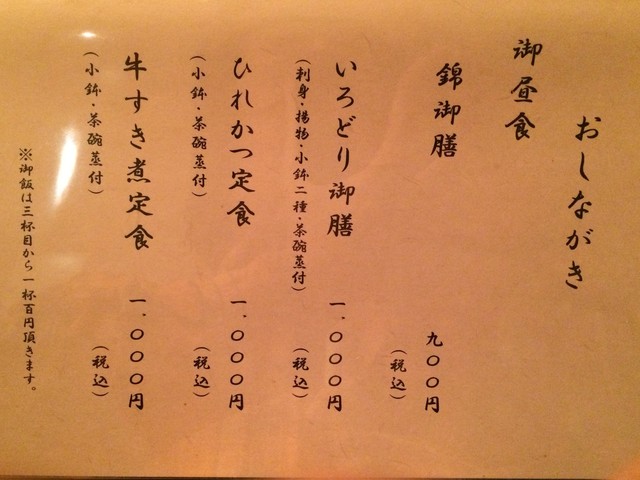 おしながき
御昼食
錦御膳
九〇〇円
（税込）
いろどり御膳
（刺身・揚物・小鉢二種・茶碗蒸付）
一.〇〇〇円
（税込）
ひれかつ定食
（小鉢・茶碗蒸付）
一.〇〇〇円
（税込）
牛すき煮定食
（小鉢・茶碗蒸付）
一.〇〇〇円
（税込）
※御飯は三杯目から一杯百円頂きます。